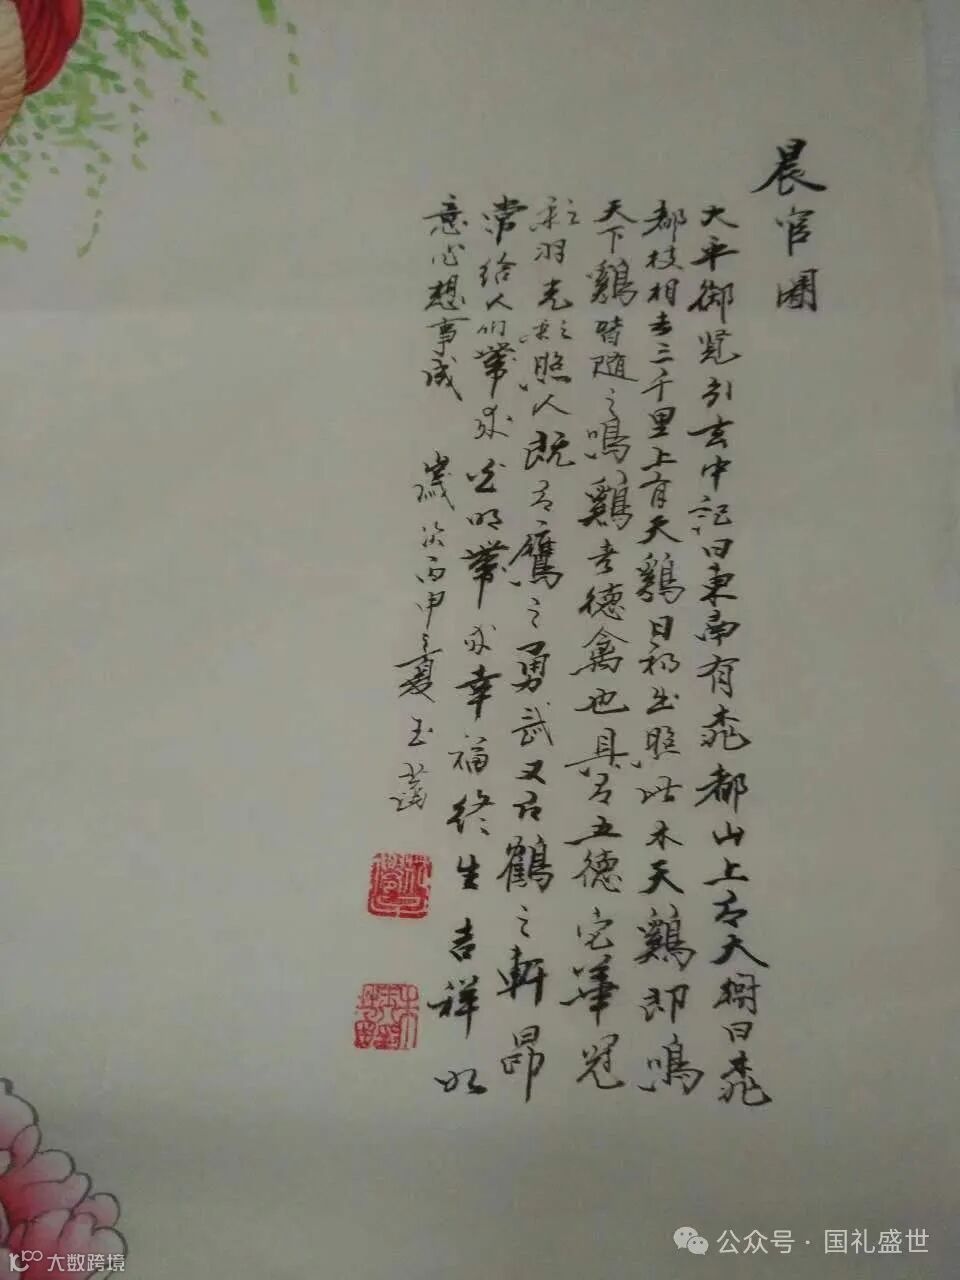 晨官圖
大平御览引玄中記曰東南有桃都山上有大樹曰桃
都枝相去三千里上有天鷄日初出照此木天鷄即鳴
天下鷄皆随之鳴鷄者德禽也具有五德它華冠
彩羽光彩照人既有鷹之勇武又有鶴之軒昂
常给人们带来光明带来幸福终生吉祥如
意心想事成
歲次丙申之夏玉
公众号·国礼盛世
大数跨境